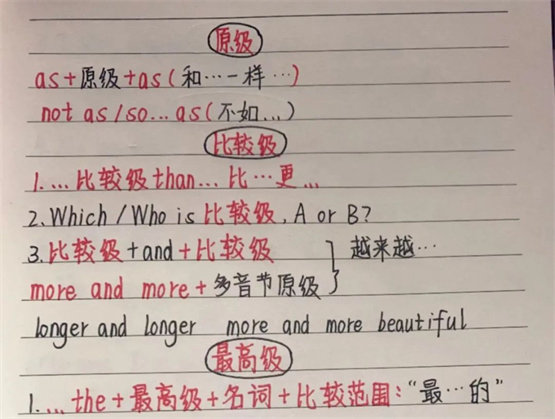 原级
as+原级+as(和…一样…)
not as/so...as(不如...)
比较级
1....比较级than...比…更...
2.Which/Who is 比较级,A or B?
3.比较级+and+比较级 } 越来越…
more and more+多音节原级
longer and longer more and more beautiful
最高级
1....the+最高级+名词+比较范围:“最…的”